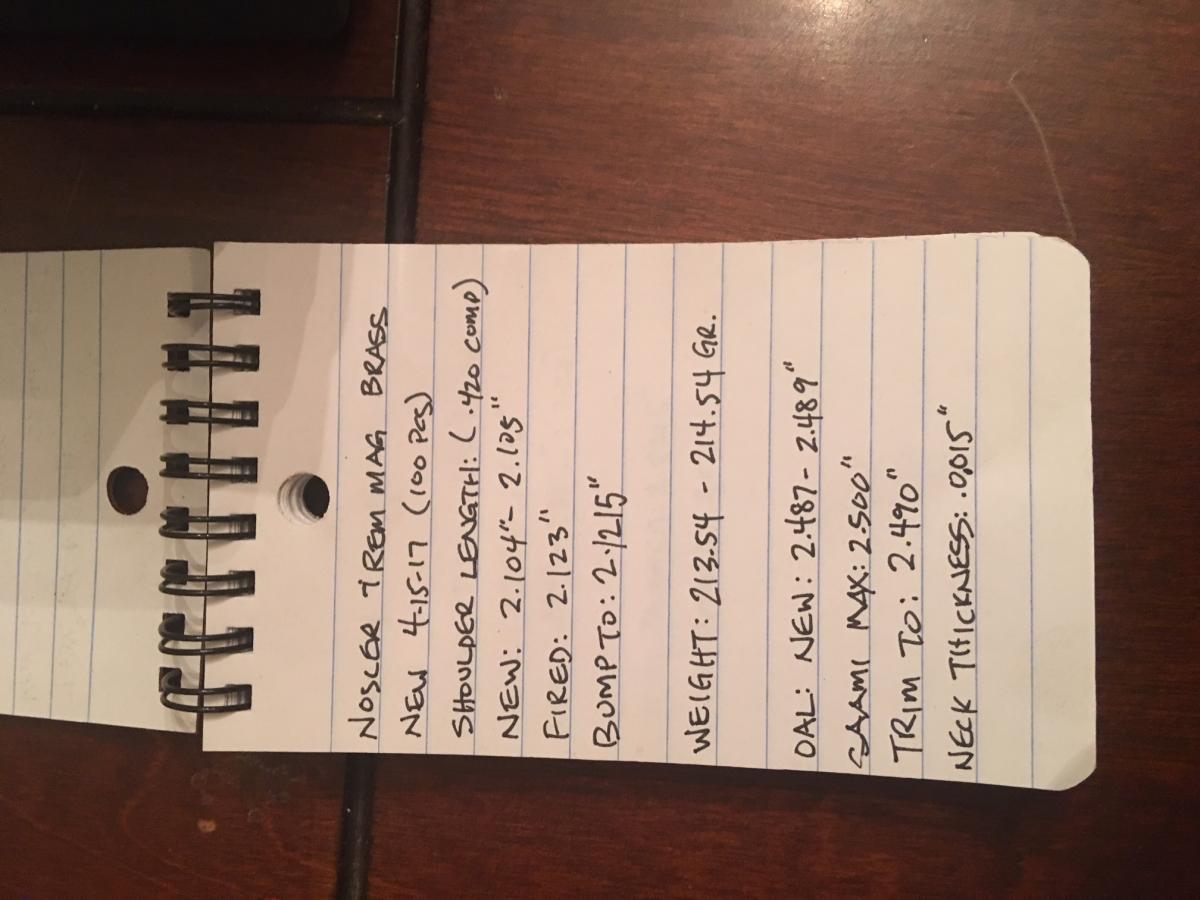 NOSLER 7 REM MAG BRASS
NEW 4-15-17 (100 PCS)
SHOULDER LENGTH: (.420 COMP)
NEW: 2.104" - 2.105"
FIRED: 2.123"
BUMP TO: 2.1215"
WEIGHT: 213.54 - 214.54 GR.
OAL: NEW: 2.487 - 2.489"
SAAMI MAX: 2.500"
TRIM TO: 2.490"
NECK THICKNESS: .0015"